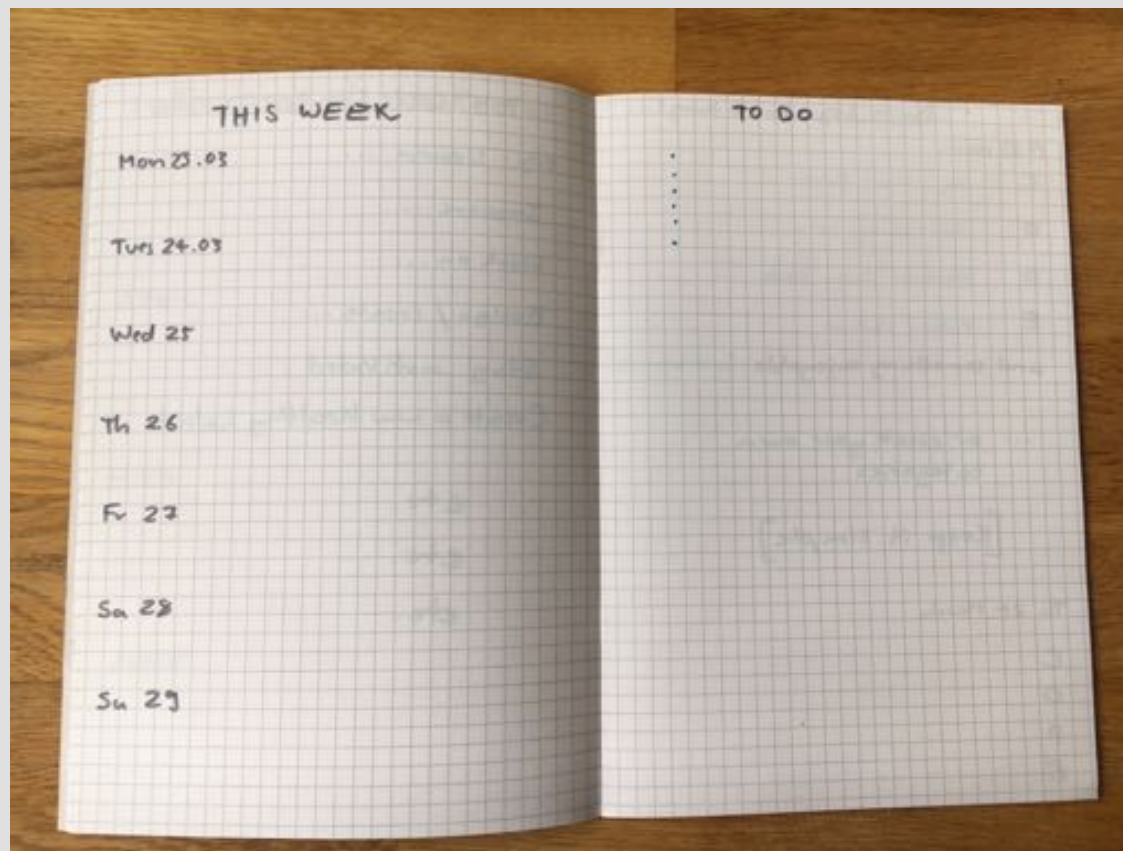 THIS WEEK
Mon 23.03
Tues 24.03
Wed 25
Th 26
Fr 27
Sa 28
Su 29
TO DO